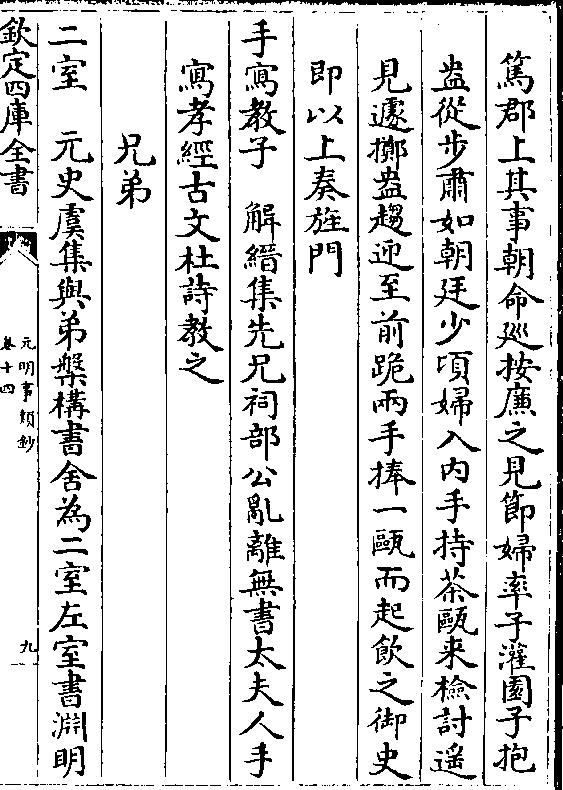 篤郡上其事朝命廵按廉之見節婦率子灌園子抱
盎從步肅如朝廷少頃婦入内手持茶甌来檢討遥
見遽擲盎趨迎至前跪兩手捧一甌而起飲之御史
即以上奏旌門
手寫教子　解縉集先兄祠部公亂離無書太夫人手
寫孝經古文杜詩教之
兄弟
二室　元史虞集與弟槃構書舍為二室左室書淵明
欽定四庫全書
元明事類鈔
卷十四
九